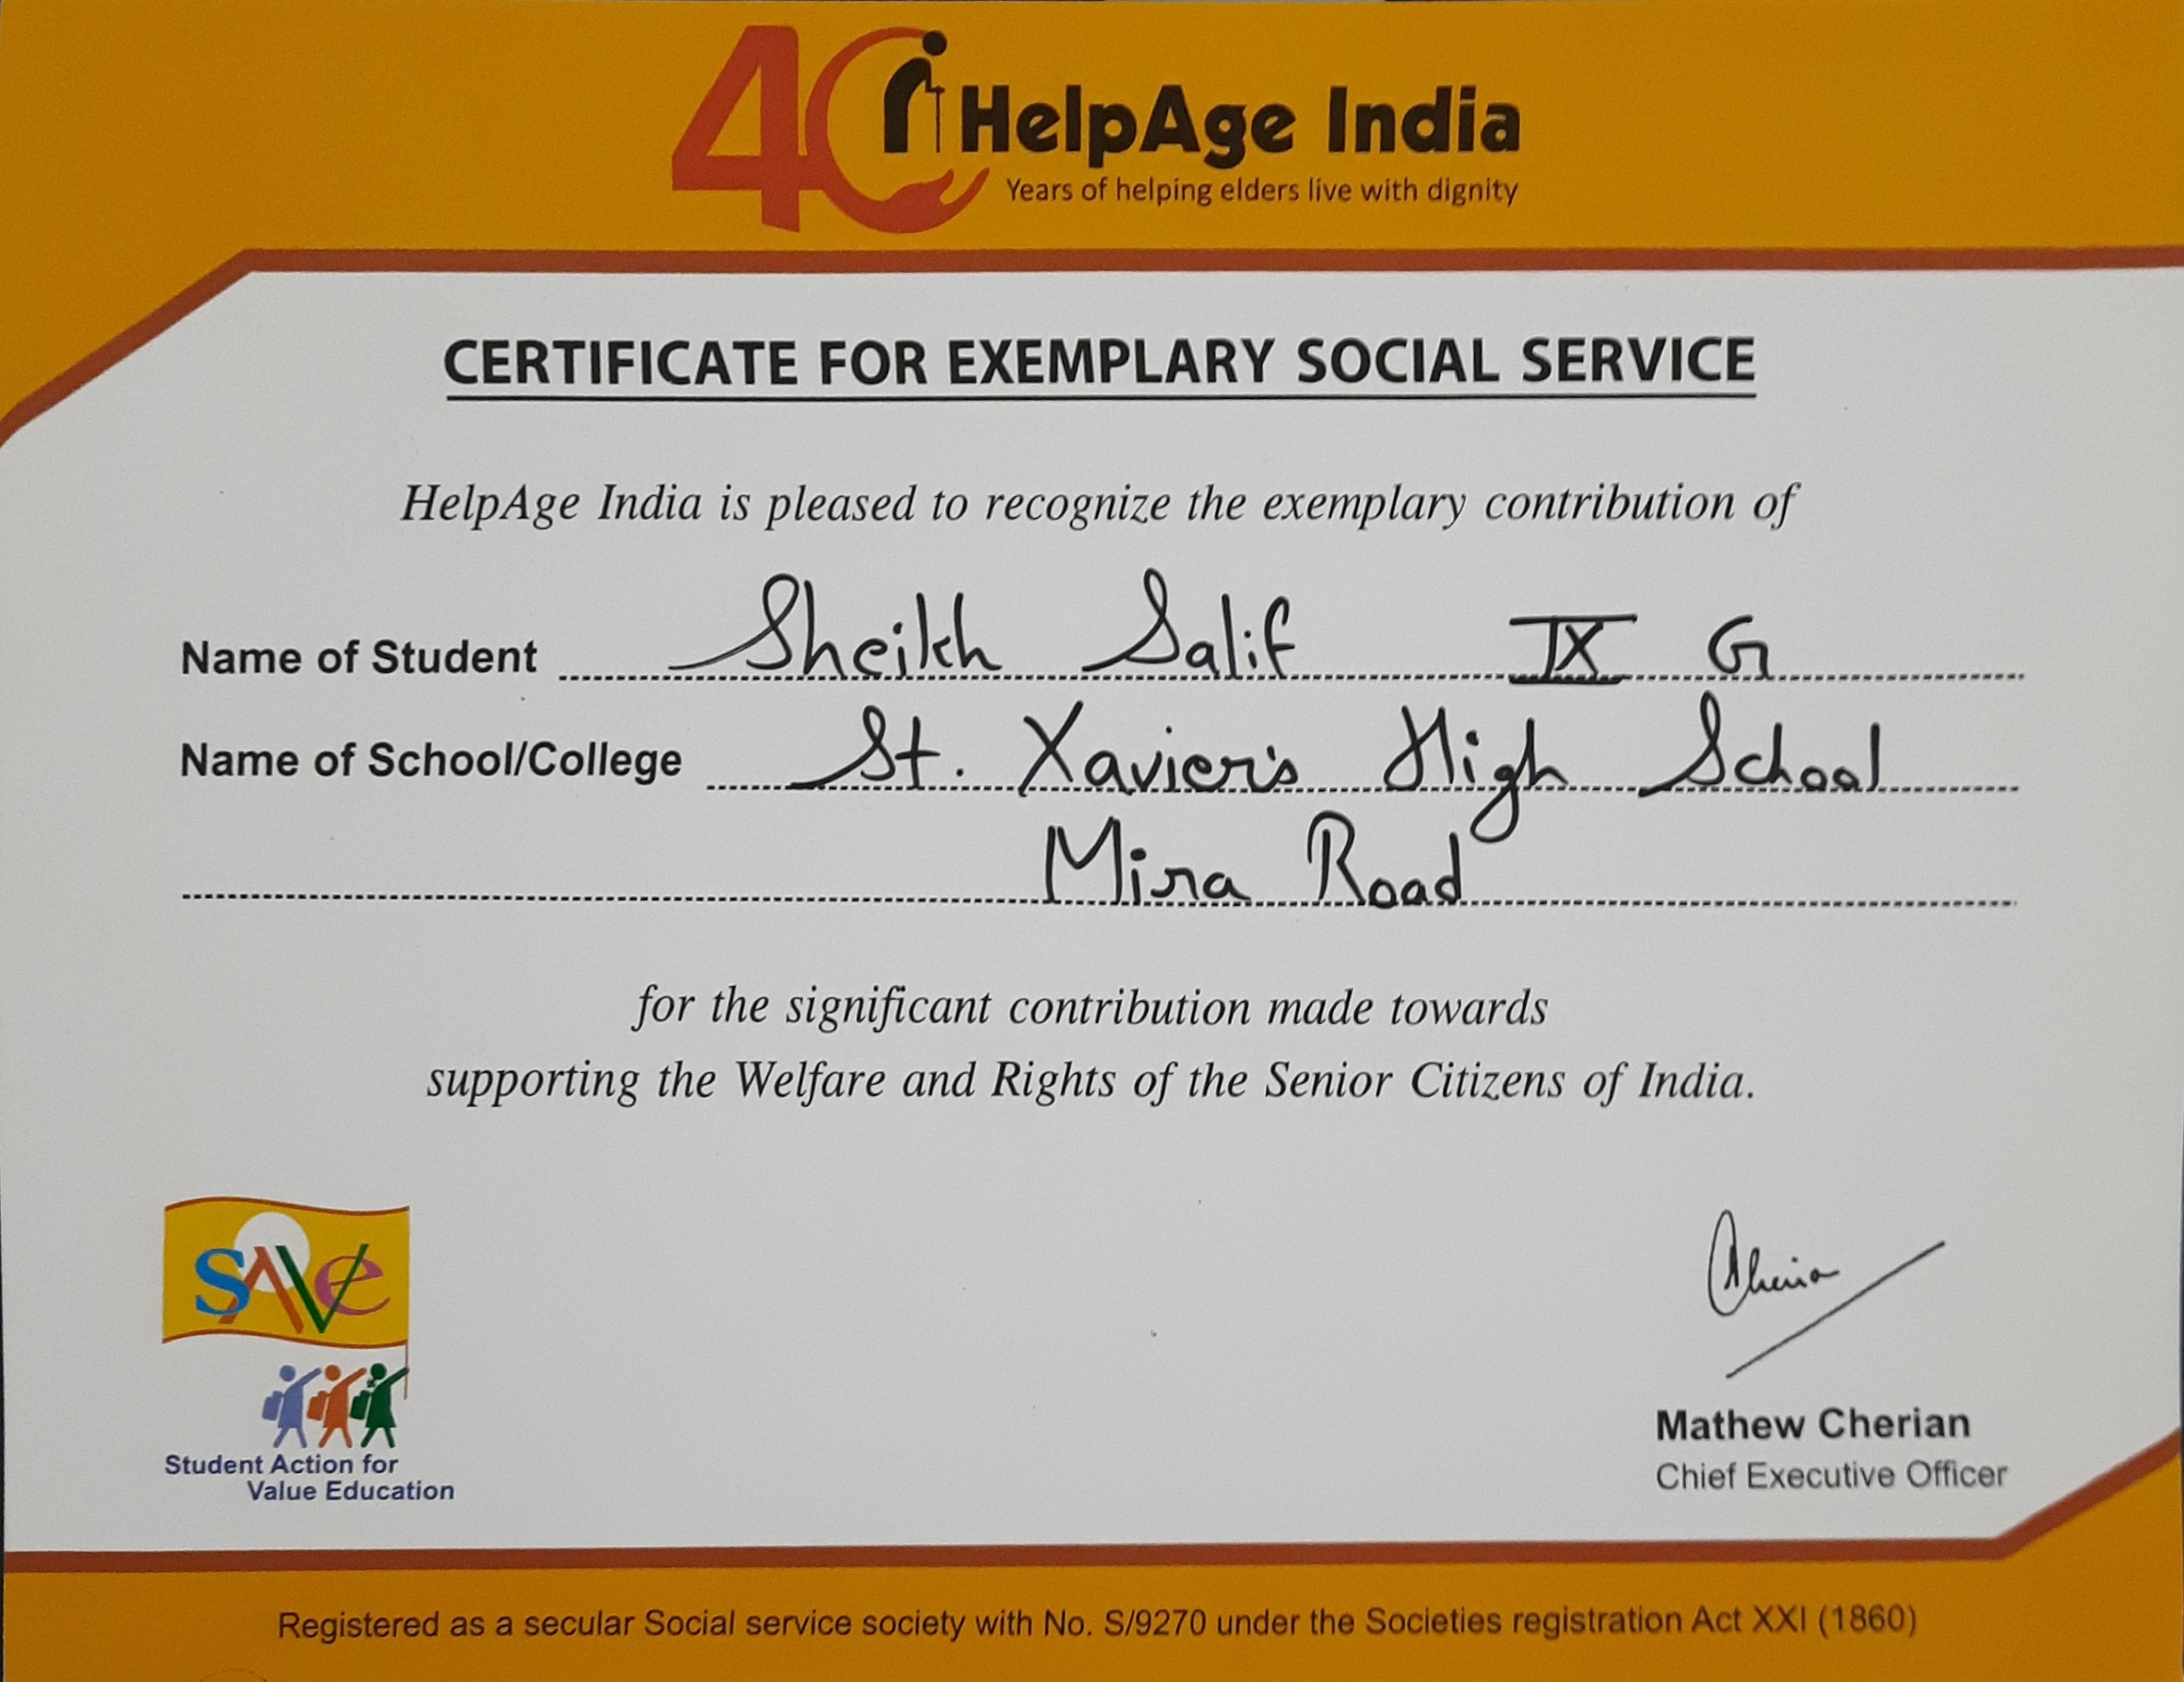 40 HelpAge India
Years of helping elders live with dignity
CERTIFICATE FOR EXEMPLARY SOCIAL SERVICE
HelpAge India is pleased to recognize the exemplary contribution of
Name of Student Sheikh Salif IX G
Name of School/College St. Xavier's High School
Mira Road
for the significant contribution made towards
supporting the Welfare and Rights of the Senior Citizens of India.
SAVe
Student Action for
Value Education
Cheria
Mathew Cherian
Chief Executive Officer
Registered as a secular Social service society with No. S/9270 under the Societies registration Act XXI (1860)